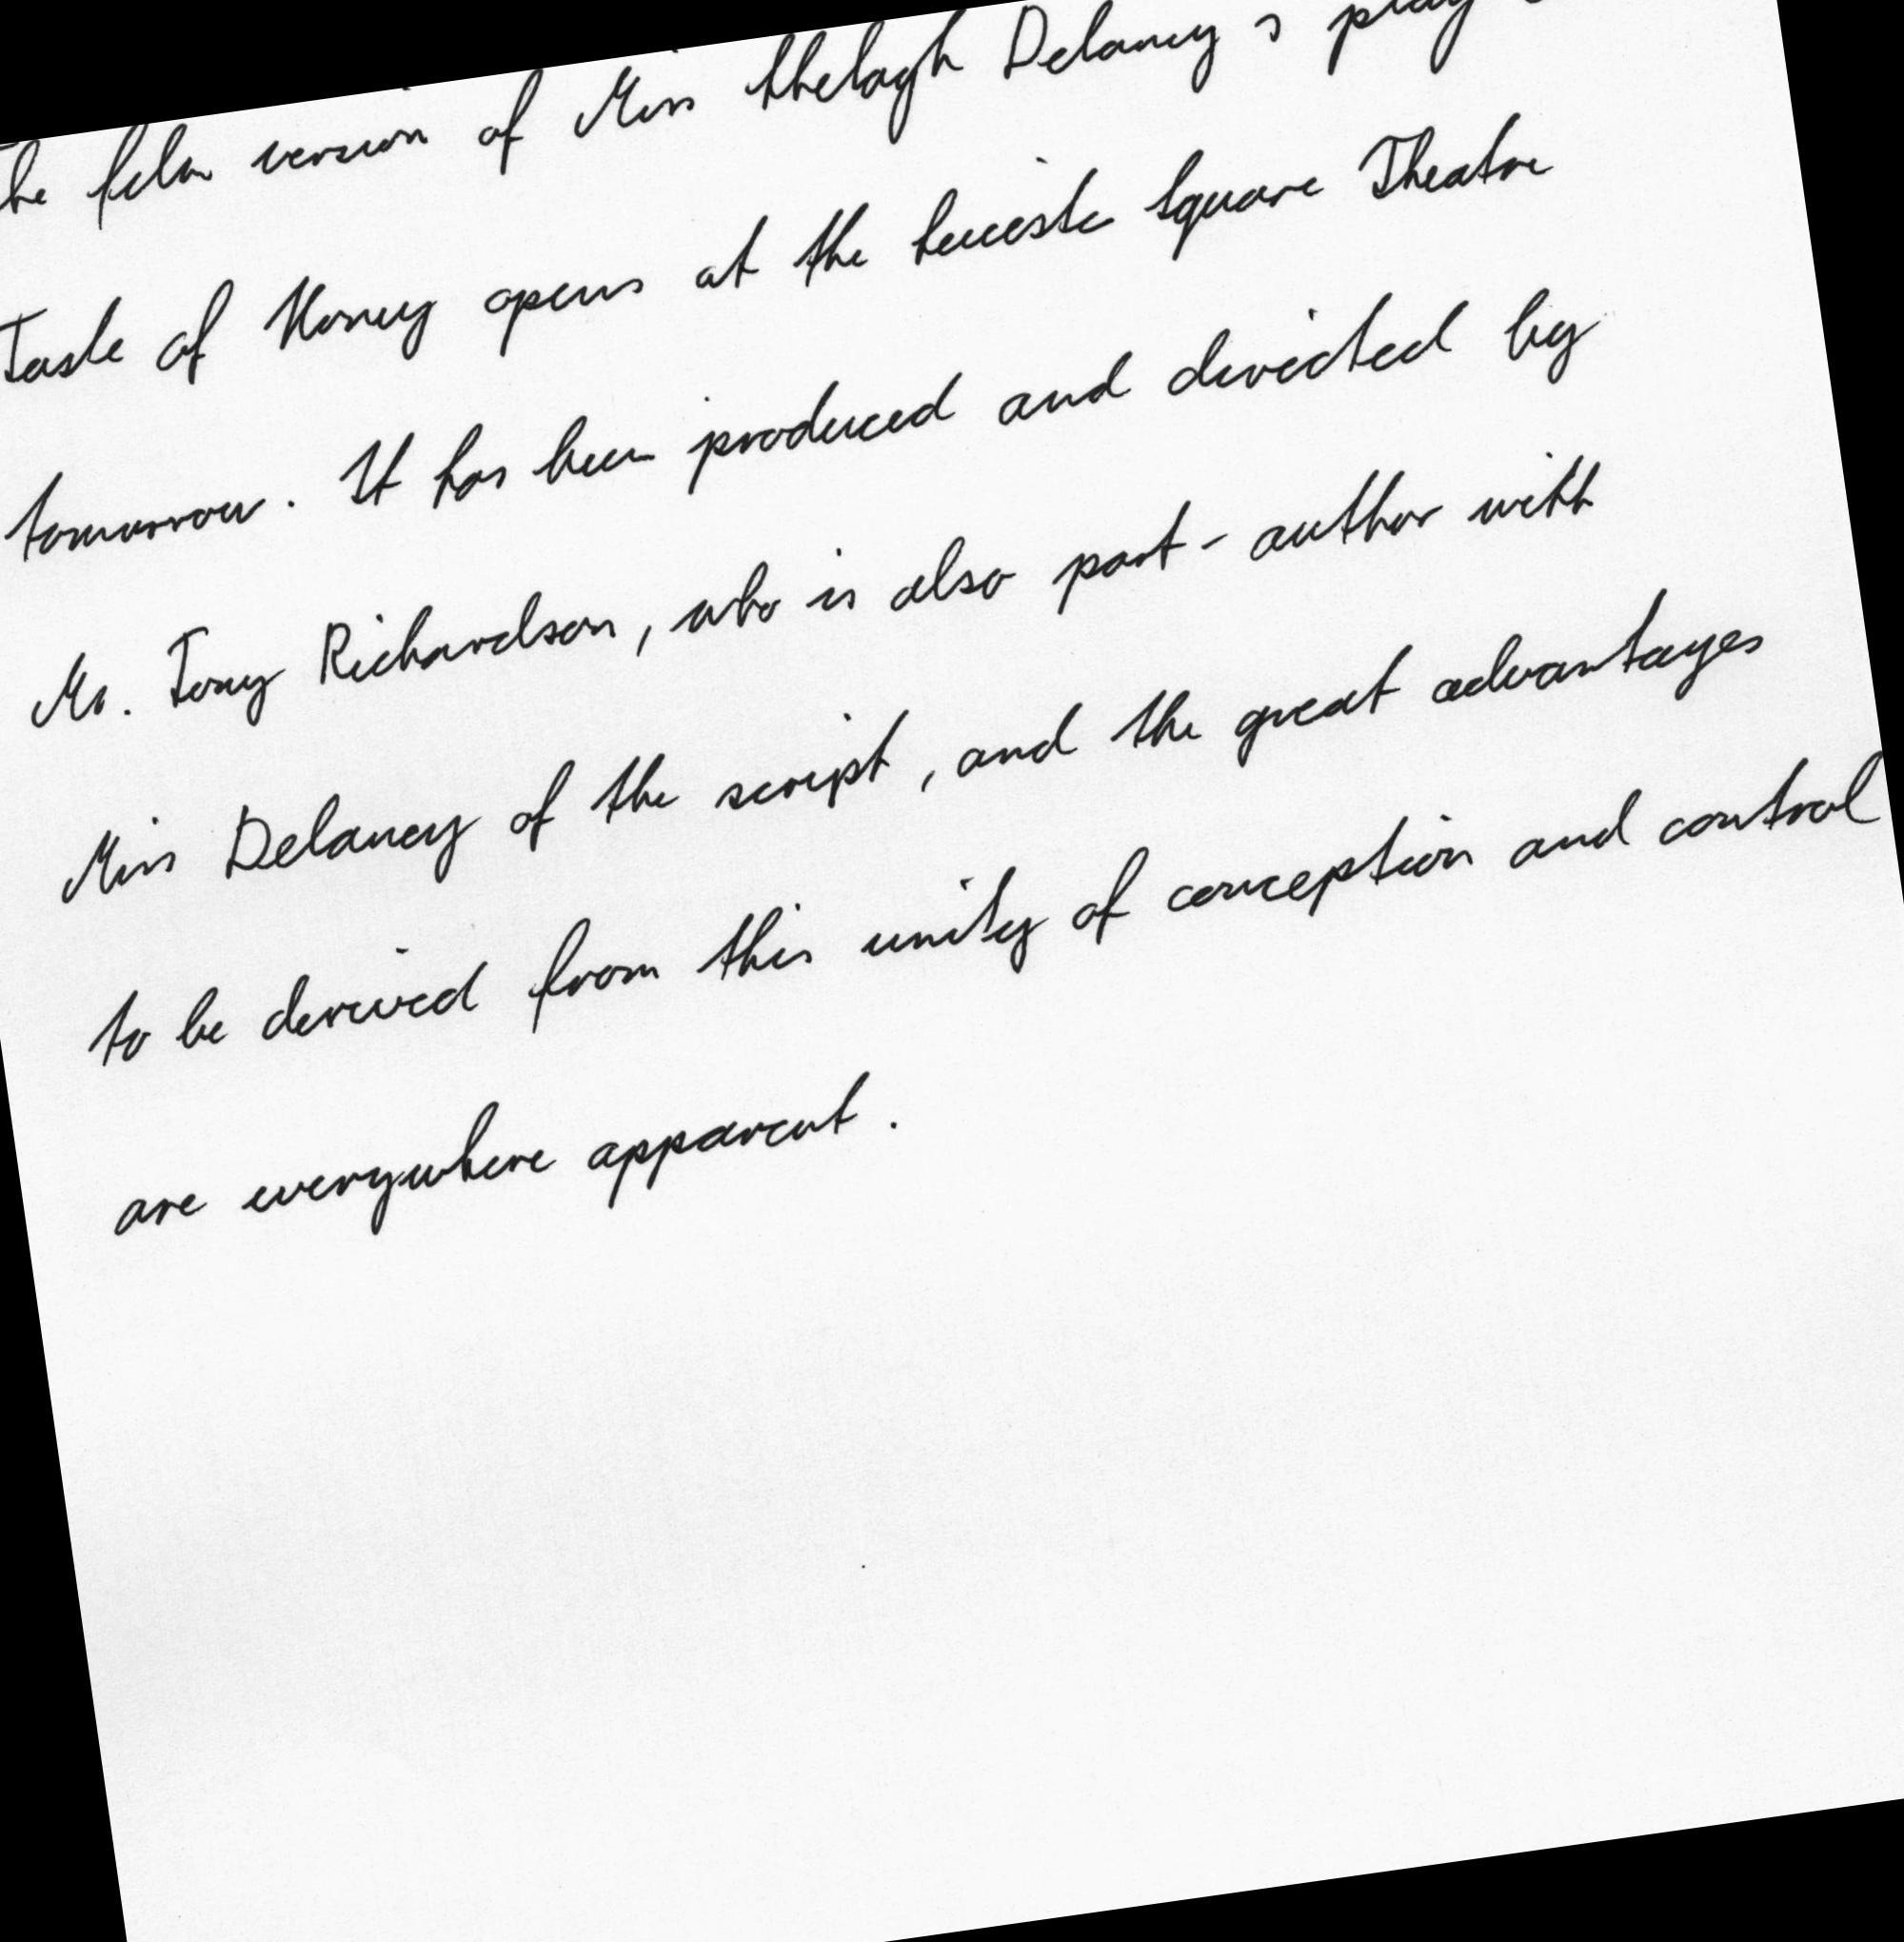 The film version of Miss Shelagh Delaney's play
Taste of Honey opens at the Leicester Square Theatre
tomorrow. It has been produced and directed by
Mr. Tony Richardson, who is also part-author with
Miss Delaney of the script, and the great advantages
to be derived from this unity of conception and control
are everywhere apparent.